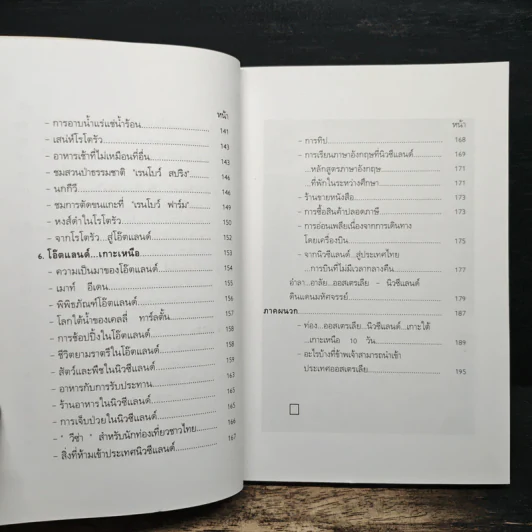 หน้า
- การอาบน้ำแร่แช่น้ำร้อน.................... 141
- เสน่ห์โรโตรัว.................... 143
- อาหารเช้าที่ไม่เหมือนที่อื่น.................... 143
- ชมสวนป่าธรรมชาติ "เรนโบว์ สปริง".................... 146
- นกกีวี.................... 146
- ชมการตัดขนแกะที่ "เรนโบว์ ฟาร์ม".................... 149
- หงส์ดำในโรโตรัว.................... 150
- จากโรโตรัว...สู่โอ๊คแลนด์.................... 152
6. โอ๊คแลนด์...เกาะเหนือ.................... 153
- ความเป็นมาของโอ๊คแลนด์.................... 154
- เมาท์ อีเดน....................
- พิพิธภัณฑ์โอ๊คแลนด์....................
- โลกใต้น้ำของเคลลี่ ทาร์ลตั้น....................
- การช้อปปิ้งในโอ๊คแลนด์.................... 158
- ชีวิตยามราตรีในโอ๊คแลนด์.................... 158
- สัตว์และพืชในนิวซีแลนด์.................... 159
- อาหารกับการรับประทาน.................... 163
- ร้านอาหารในนิวซีแลนด์.................... 165
- การเจ็บป่วยในนิวซีแลนด์.................... 165
- " วีซ่า " สำหรับนักท่องเที่ยวชาวไทย.................... 166
- สิ่งที่ห้ามเข้าประเทศนิวซีแลนด์.................... 167
หน้า
- การทิป.................... 168
- การเรียนภาษาอังกฤษที่นิวซีแลนด์.................... 169
...หลักสูตรภาษาอังกฤษ.................... 171
...ที่พักในระหว่างศึกษา.................... 171
- ร้านขายหนังสือ.................... 173
- การซื้อสินค้าปลอดภาษี.................... 173
- การอ่อนเพลียเนื่องจากการเดินทาง
โดยเครื่องบิน.................... 175
- จากนิวซีแลนด์...สู่ประเทศไทย
...การบินที่ไม่มีเวลากลางคืน.................... 177
อำลา...อาลัย...ออสเตรเลีย - นิวซีแลนด์
ดินแดนมหัศจรรย์.................... 179
ภาคผนวก.................... 187
- ท่อง...ออสเตรเลีย...นิวซีแลนด์...เกาะใต้
...เกาะเหนือ 10 วัน.................... 189
- อะไรบ้างที่ข้าพเจ้าสามารถนำเข้า
ประเทศออสเตรเลีย.................... 195